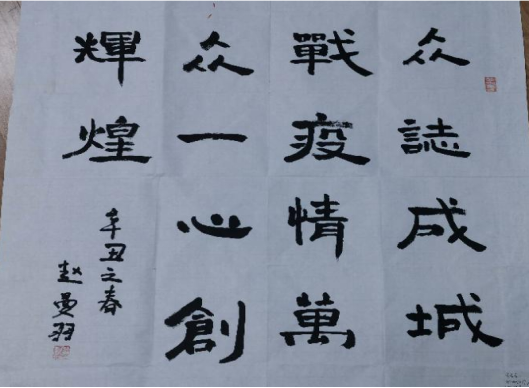 众誌成城
戰疫情萬
众一心創
輝煌
辛丑之春
赵曼羽